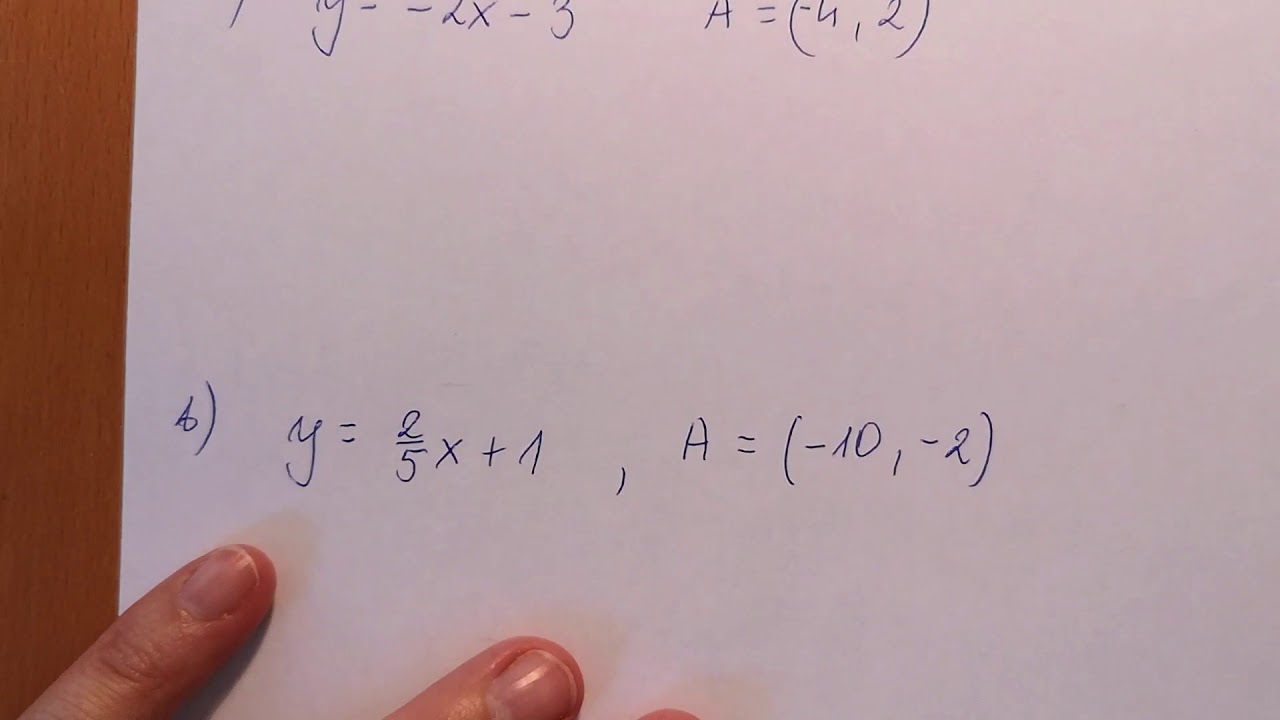 ) y = -2x - 3 A = (-4, 2)
b) y = 2/5 x + 1 , A = (-10, -2)